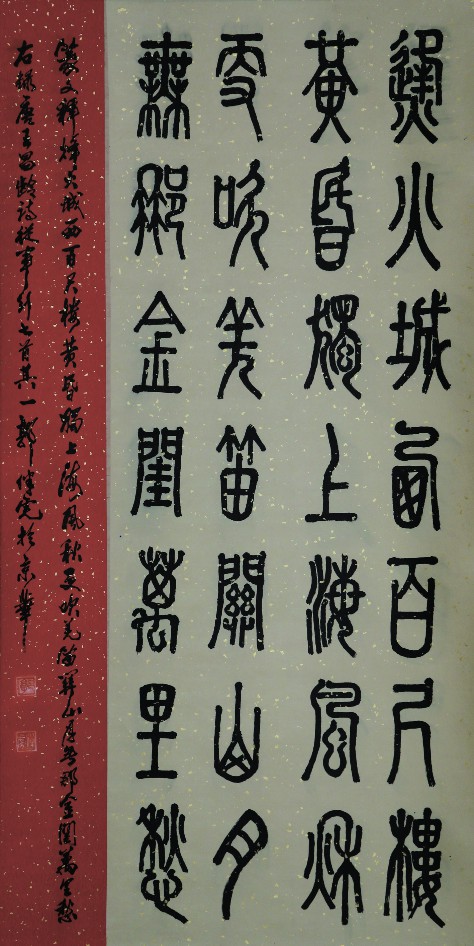 烽火城西百尺樓
黃昏獨上海風秋
更吹羌笛關山月
無那金閨萬里愁
篆文釋烽火城西百尺樓黄昏獨上海風秋更吹羌笛關山月無那金閨萬里愁
右録唐王昌齡詩從軍行七首其一郭於京華